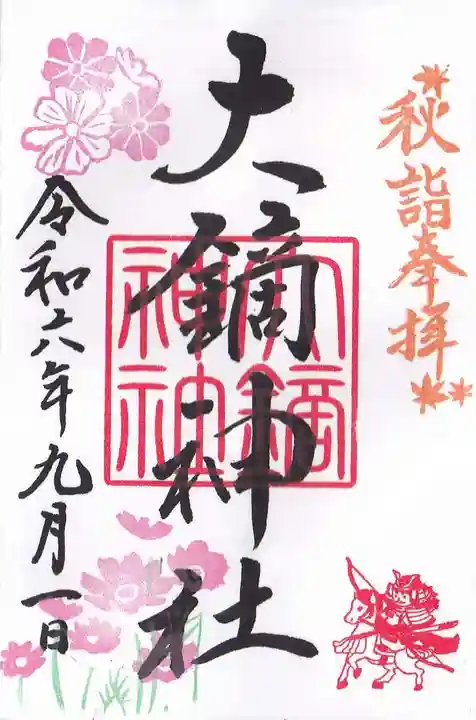 秋詣奉拝
大鏑神社
大鏑神社
令和六年九月一日